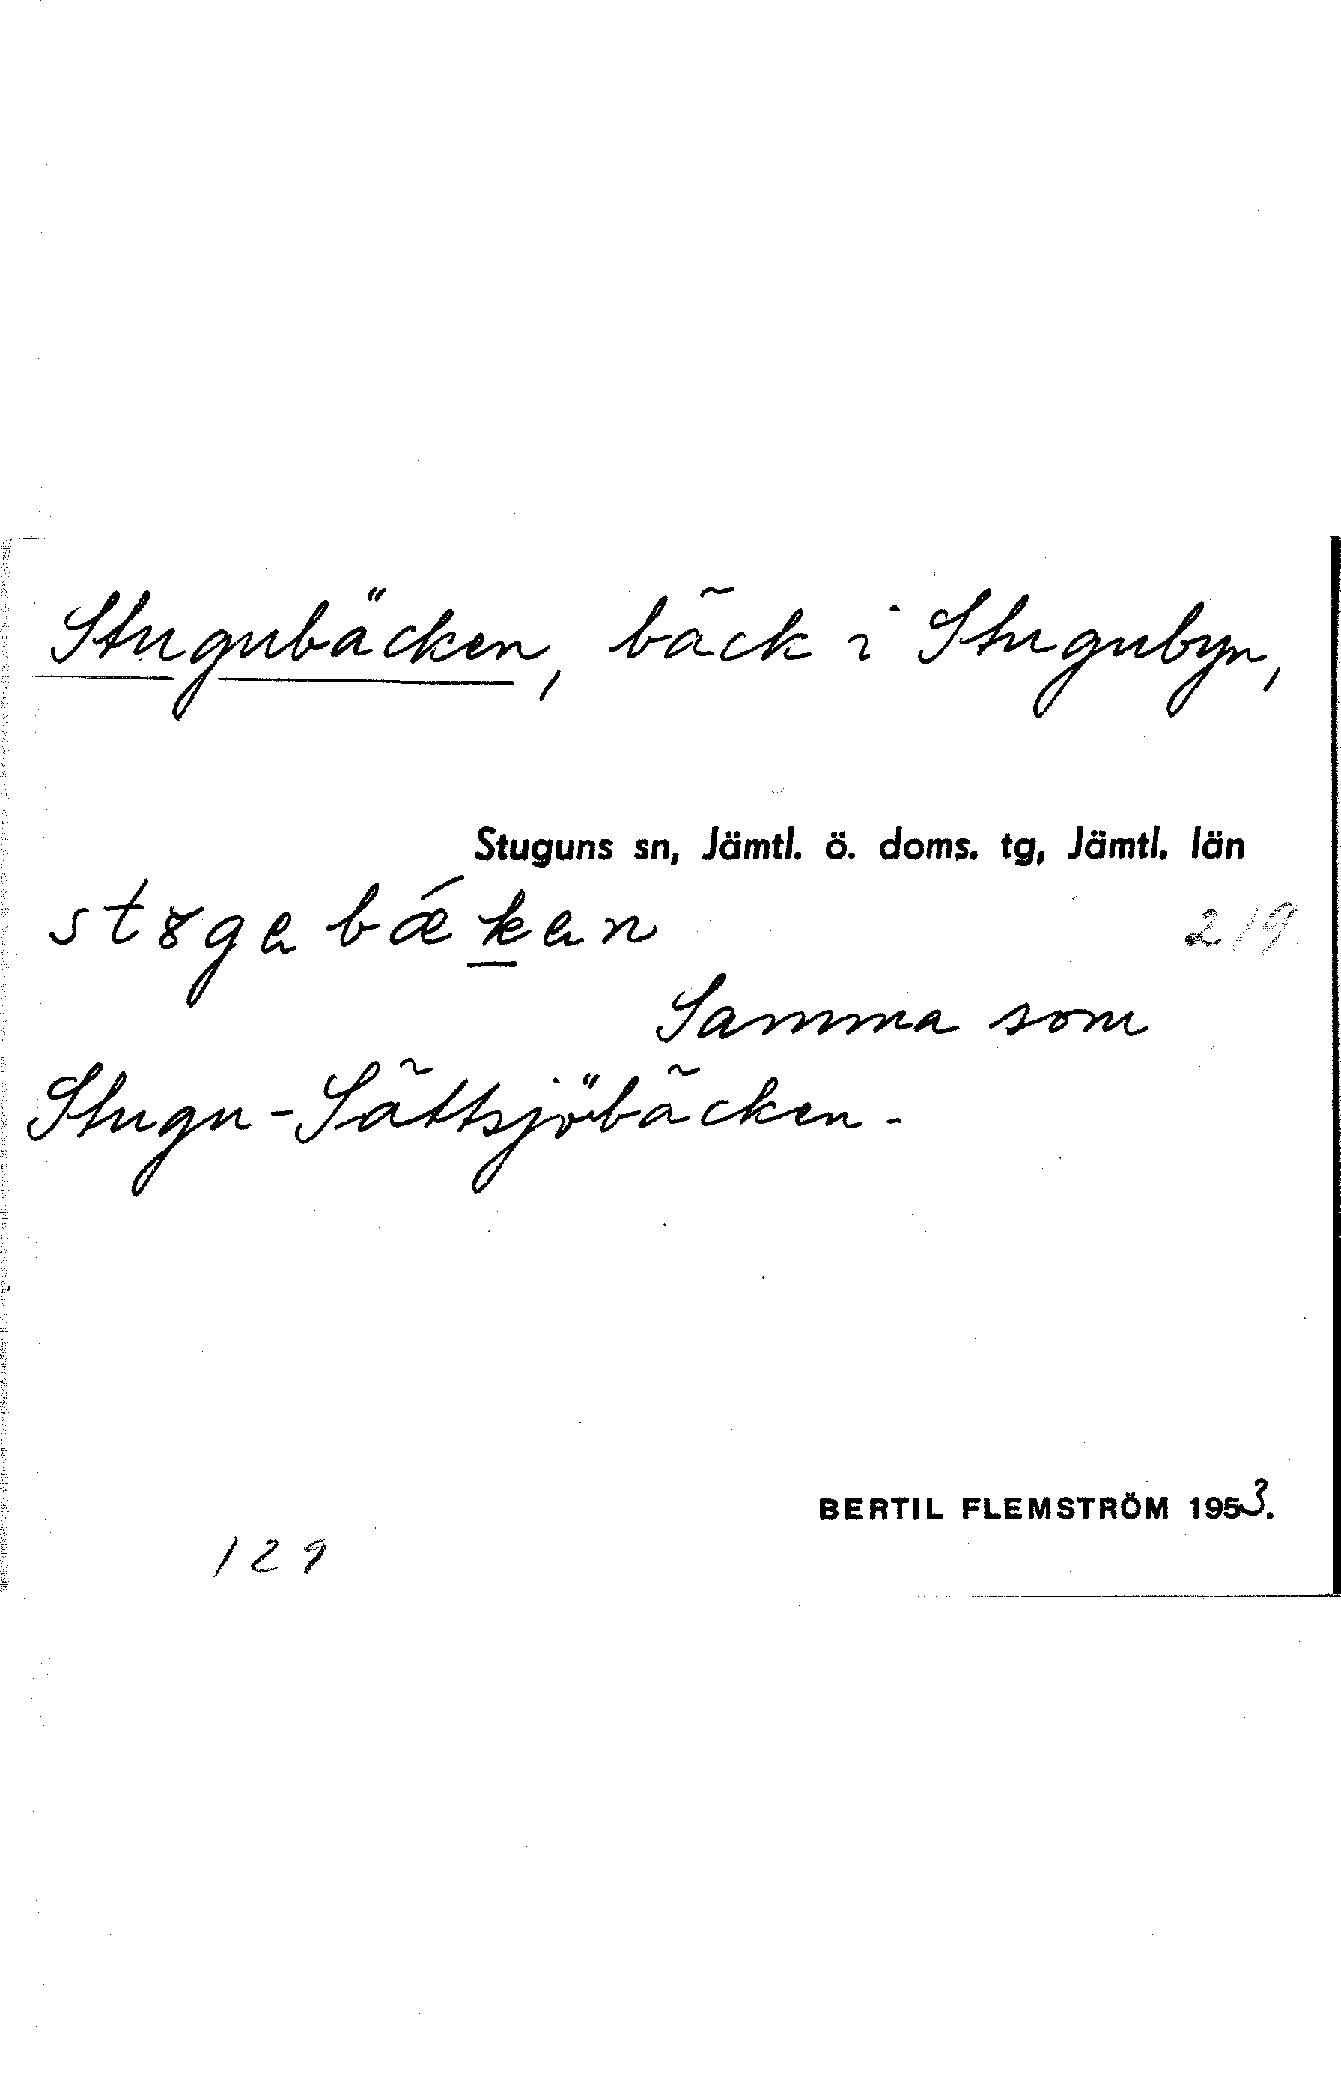 Stugubäcken, bäck i Stugubyn,
Stuguns sn, Jämtl. ö. doms. tg, Jämtl. län
219
Samma som
Stugu-Sättsjöbäcken.
BERTIL FLEMSTRÖM 1953.
129